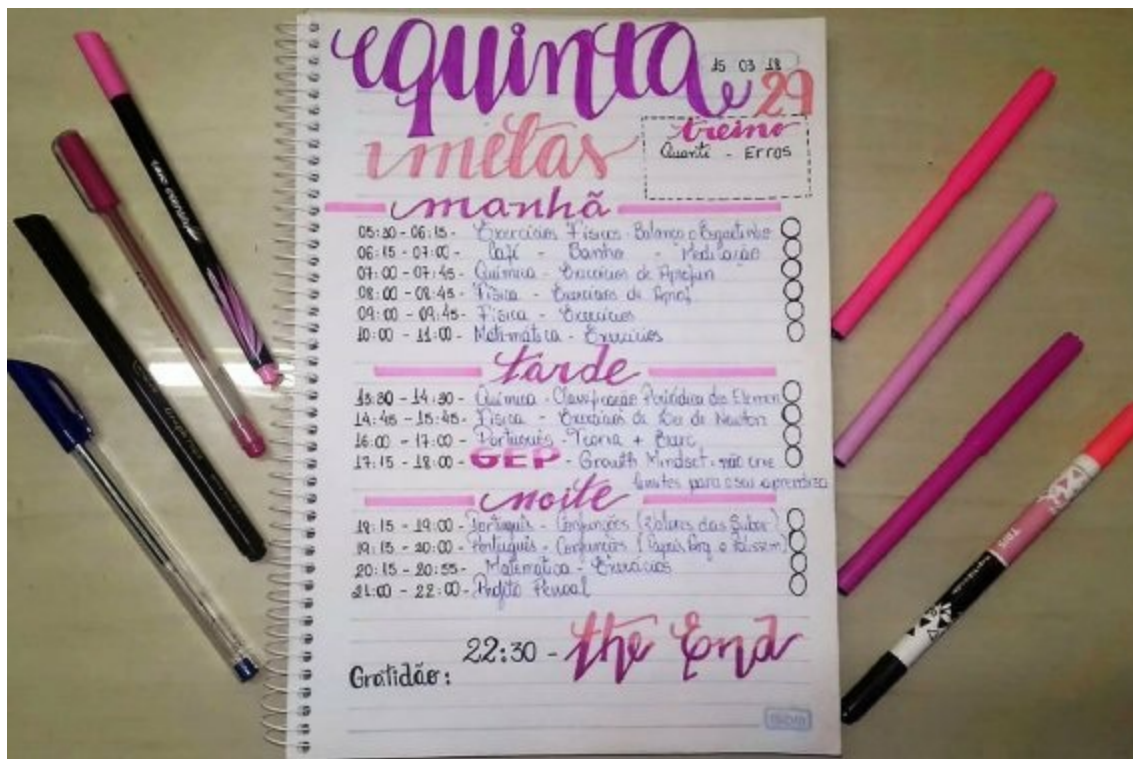 quinta
15 03 18
e 29
metas
treino
Quanti - Erros
manhã
05:30 - 06:15 - Exercícios Físicos - Balanço e
06:15 - 07:00 - Café - Banho - Meditação
07:00 - 07:45 - Química - Exercícios de Aprofun
08:00 - 08:45 - Física - Exercícios de Aprof
09:00 - 09:45 - Física - Exercícios
10:00 - 11:00 - Matemática - Exercícios
tarde
13:30 - 14:30 - Química - Classificação Periódica dos Elemen
14:45 - 15:45 - Física - Exercícios de Leis de Newton
16:00 - 17:00 - Português - Teoria + Exerc
17:15 - 18:00 - GEP - Growth Mindset: não crie
limites para o seu aprendizado
noite
18:15 - 19:00 - Português - Conjunções (Valores das Subor)
19:15 - 20:00 - Português - Conjunções
20:15 - 20:55 - Matemática - Exercícios
21:00 - 22:00 - Projeto Pessoal
22:30 - the End
Gratidão: